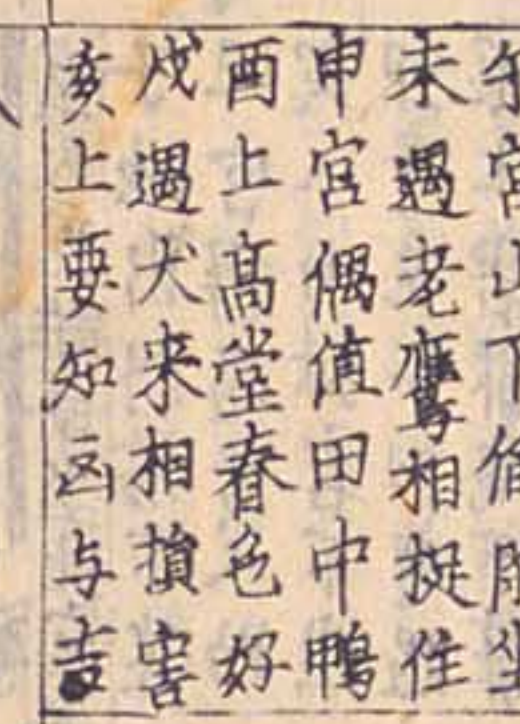 午宮山下
未遇老鷹相捉住
申宮偶值田中鴨
酉上髙堂春色好
戌遇犬来相損害
亥上要知凶与吉